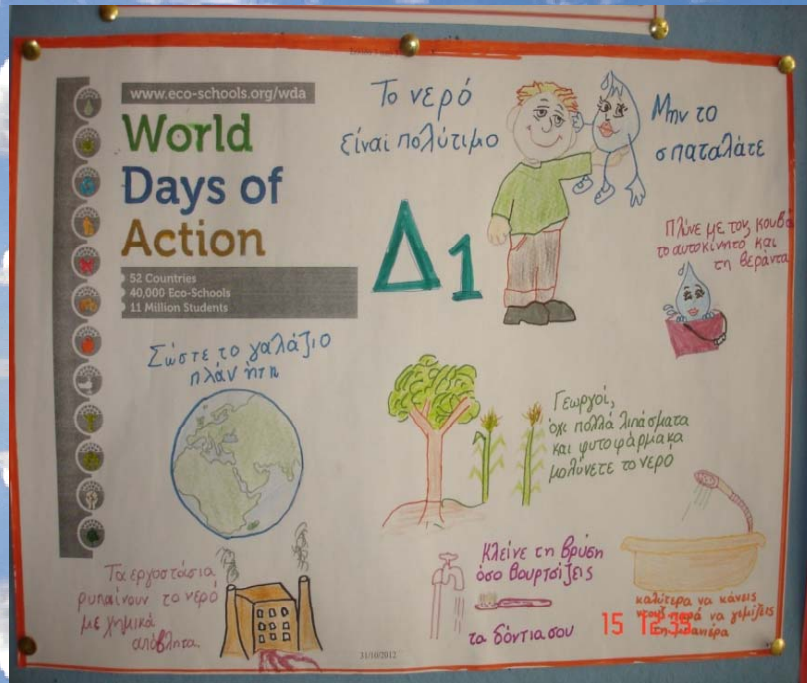 www.eco-schools.org/wda
World
Days of
Action
52 Countries
40,000 Eco-Schools
11 Million Students
Το νερό
είναι πολύτιμο
Μην το
σπαταλάτε
Δ1
Πλύνε με τον κουβά
το αυτοκίνητό και
τη βεράντα
Σώστε το γαλάζιο
πλάνήτη
Γεωργοί,
όχι πολλά λιπάσματα
και φυτοφάρμακα
μολύνετε το νερό
Τα εργοστάσια
ρυπαίνουν το νερό
με χημικά
απόβλητα
Κλείνε τη βρύση
όσο βουρτσίζεις
τα δόντια σου
καλύτερα να κάνεις
ντουζ παρά να γεμίζεις
τη μπανιέρα
15 12:39
31/10/2012